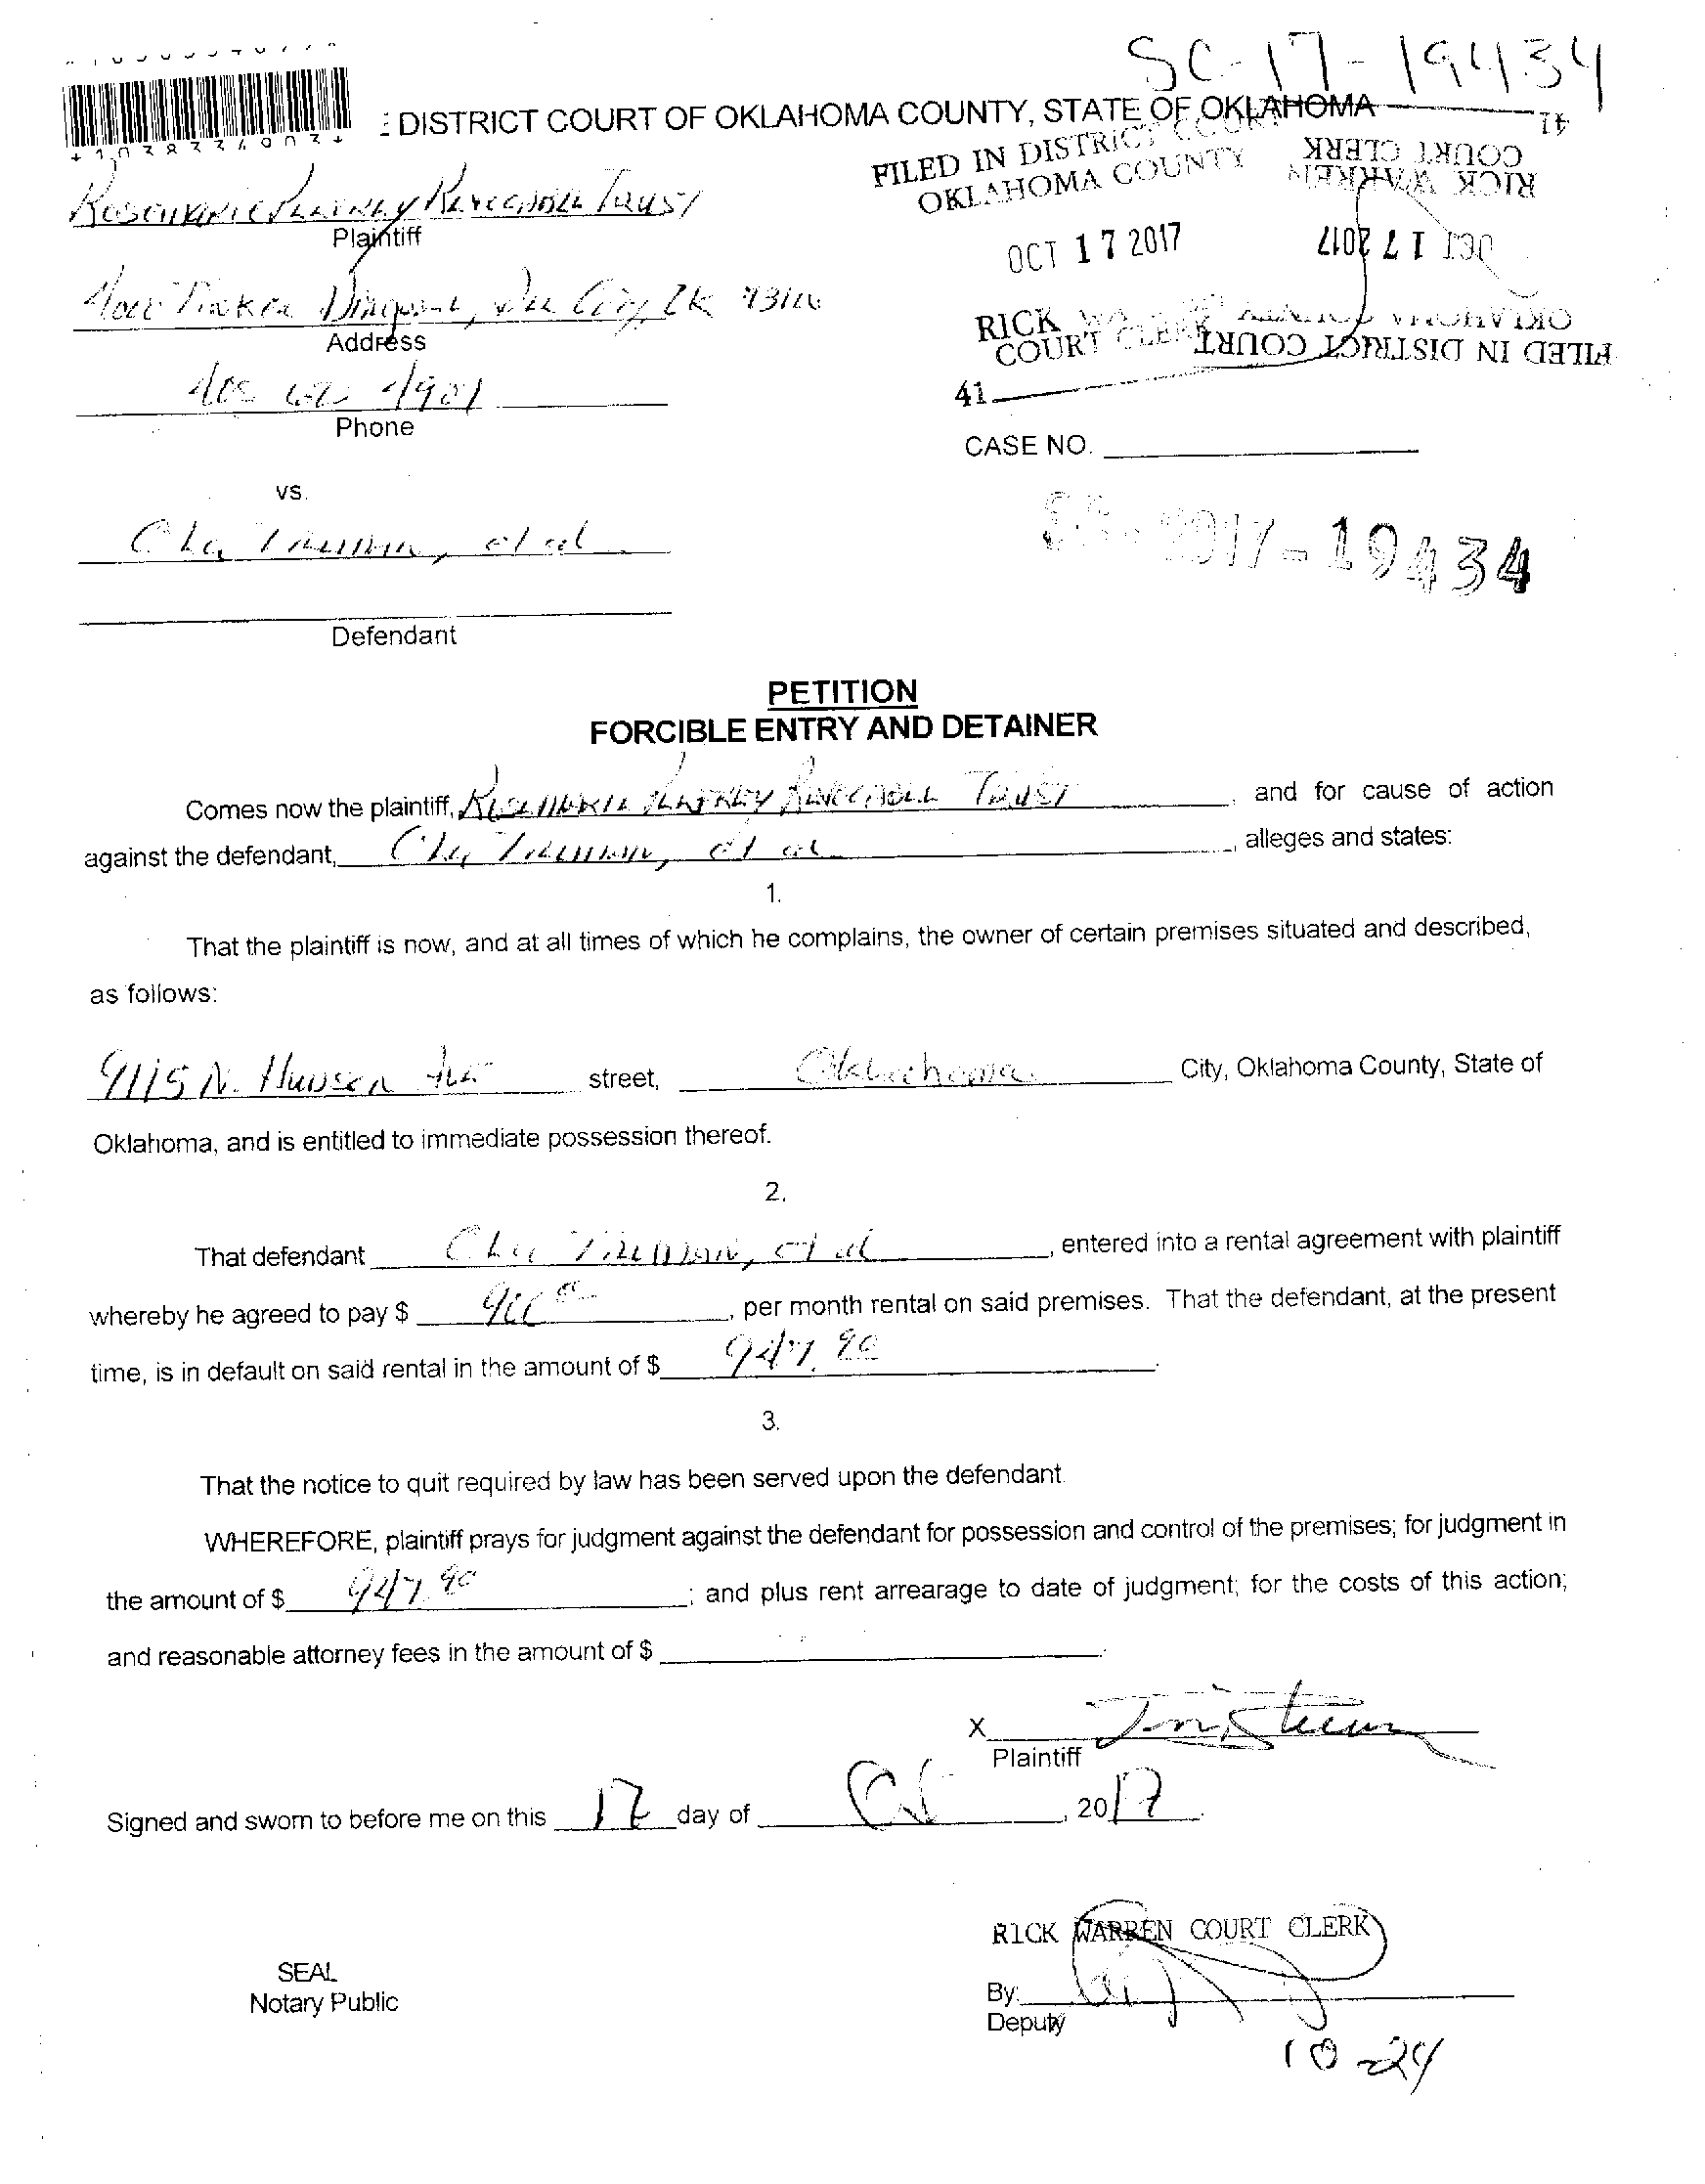 SC-17-19434
DISTRICT COURT OF OKLAHOMA COUNTY, STATE OF OKLAHOMA
FILED IN DISTRICT COURT
OKLAHOMA COUNTY
OCT 17 2017
RICK
COURT CLERK
41
41
COURT CLERK
RICK WARREN
OCT 17 2017
OKLAHOMA COUNTY
FILED IN DISTRICT COURT
Trust
Plaintiff
Diagonal, City, Ok
Address
Phone
CASE NO.
vs.
et al
2017-19434
Defendant
PETITION
FORCIBLE ENTRY AND DETAINER
Comes now the plaintiff, Trust, and for cause of action
against the defendant, et al, alleges and states:
1.
That the plaintiff is now, and at all times of which he complains, the owner of certain premises situated and described,
as follows:
9115 N. Hudson Ave street, Oklahoma City, Oklahoma County, State of
Oklahoma, and is entitled to immediate possession thereof.
2.
That defendant et al, entered into a rental agreement with plaintiff
whereby he agreed to pay $, per month rental on said premises. That the defendant, at the present
time, is in default on said rental in the amount of $ 947.90.
3.
That the notice to quit required by law has been served upon the defendant.
WHEREFORE, plaintiff prays for judgment against the defendant for possession and control of the premises; for judgment in
the amount of $ 947.90; and plus rent arrearage to date of judgment; for the costs of this action;
and reasonable attorney fees in the amount of $.
X
Plaintiff
Signed and sworn to before me on this 17 day of Oct, 2017.
RICK WARREN COURT CLERK
SEAL
Notary Public
By:
Deputy
10-24